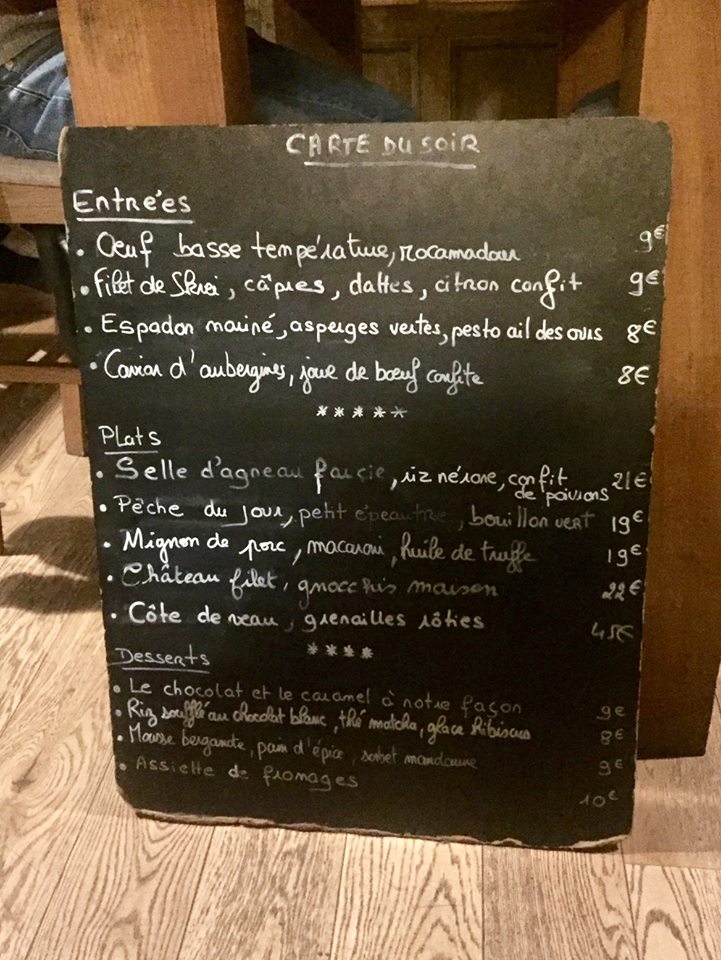 CARTE DU SOIR
Entrées
• Oeuf basse température, rocamadour 9€
• Filet de Skrei, câpres, dattes, citron confit 9€
• Espadon mariné, asperges vertes, pesto ail des ours 8€
• Caviar d'aubergines, joue de boeuf confite 8€
*****
Plats
• Selle d'agneau farcie, riz nérone, confit de poivrons 21€
• Pêche du jour, petit épeautre, bouillon vert 19€
• Mignon de porc, macaroni, huile de truffe 19€
• Château filet, gnocchis maison 22€
• Côte de veau, grenailles rôties 45€
****
Desserts
• Le chocolat et le caramel à notre façon 9€
• Riz soufflé au chocolat blanc, thé matcha, glace hibiscus 8€
• Mousse bergamote, pain d'épice, sorbet mandarine 9€
• Assiette de fromages 10€